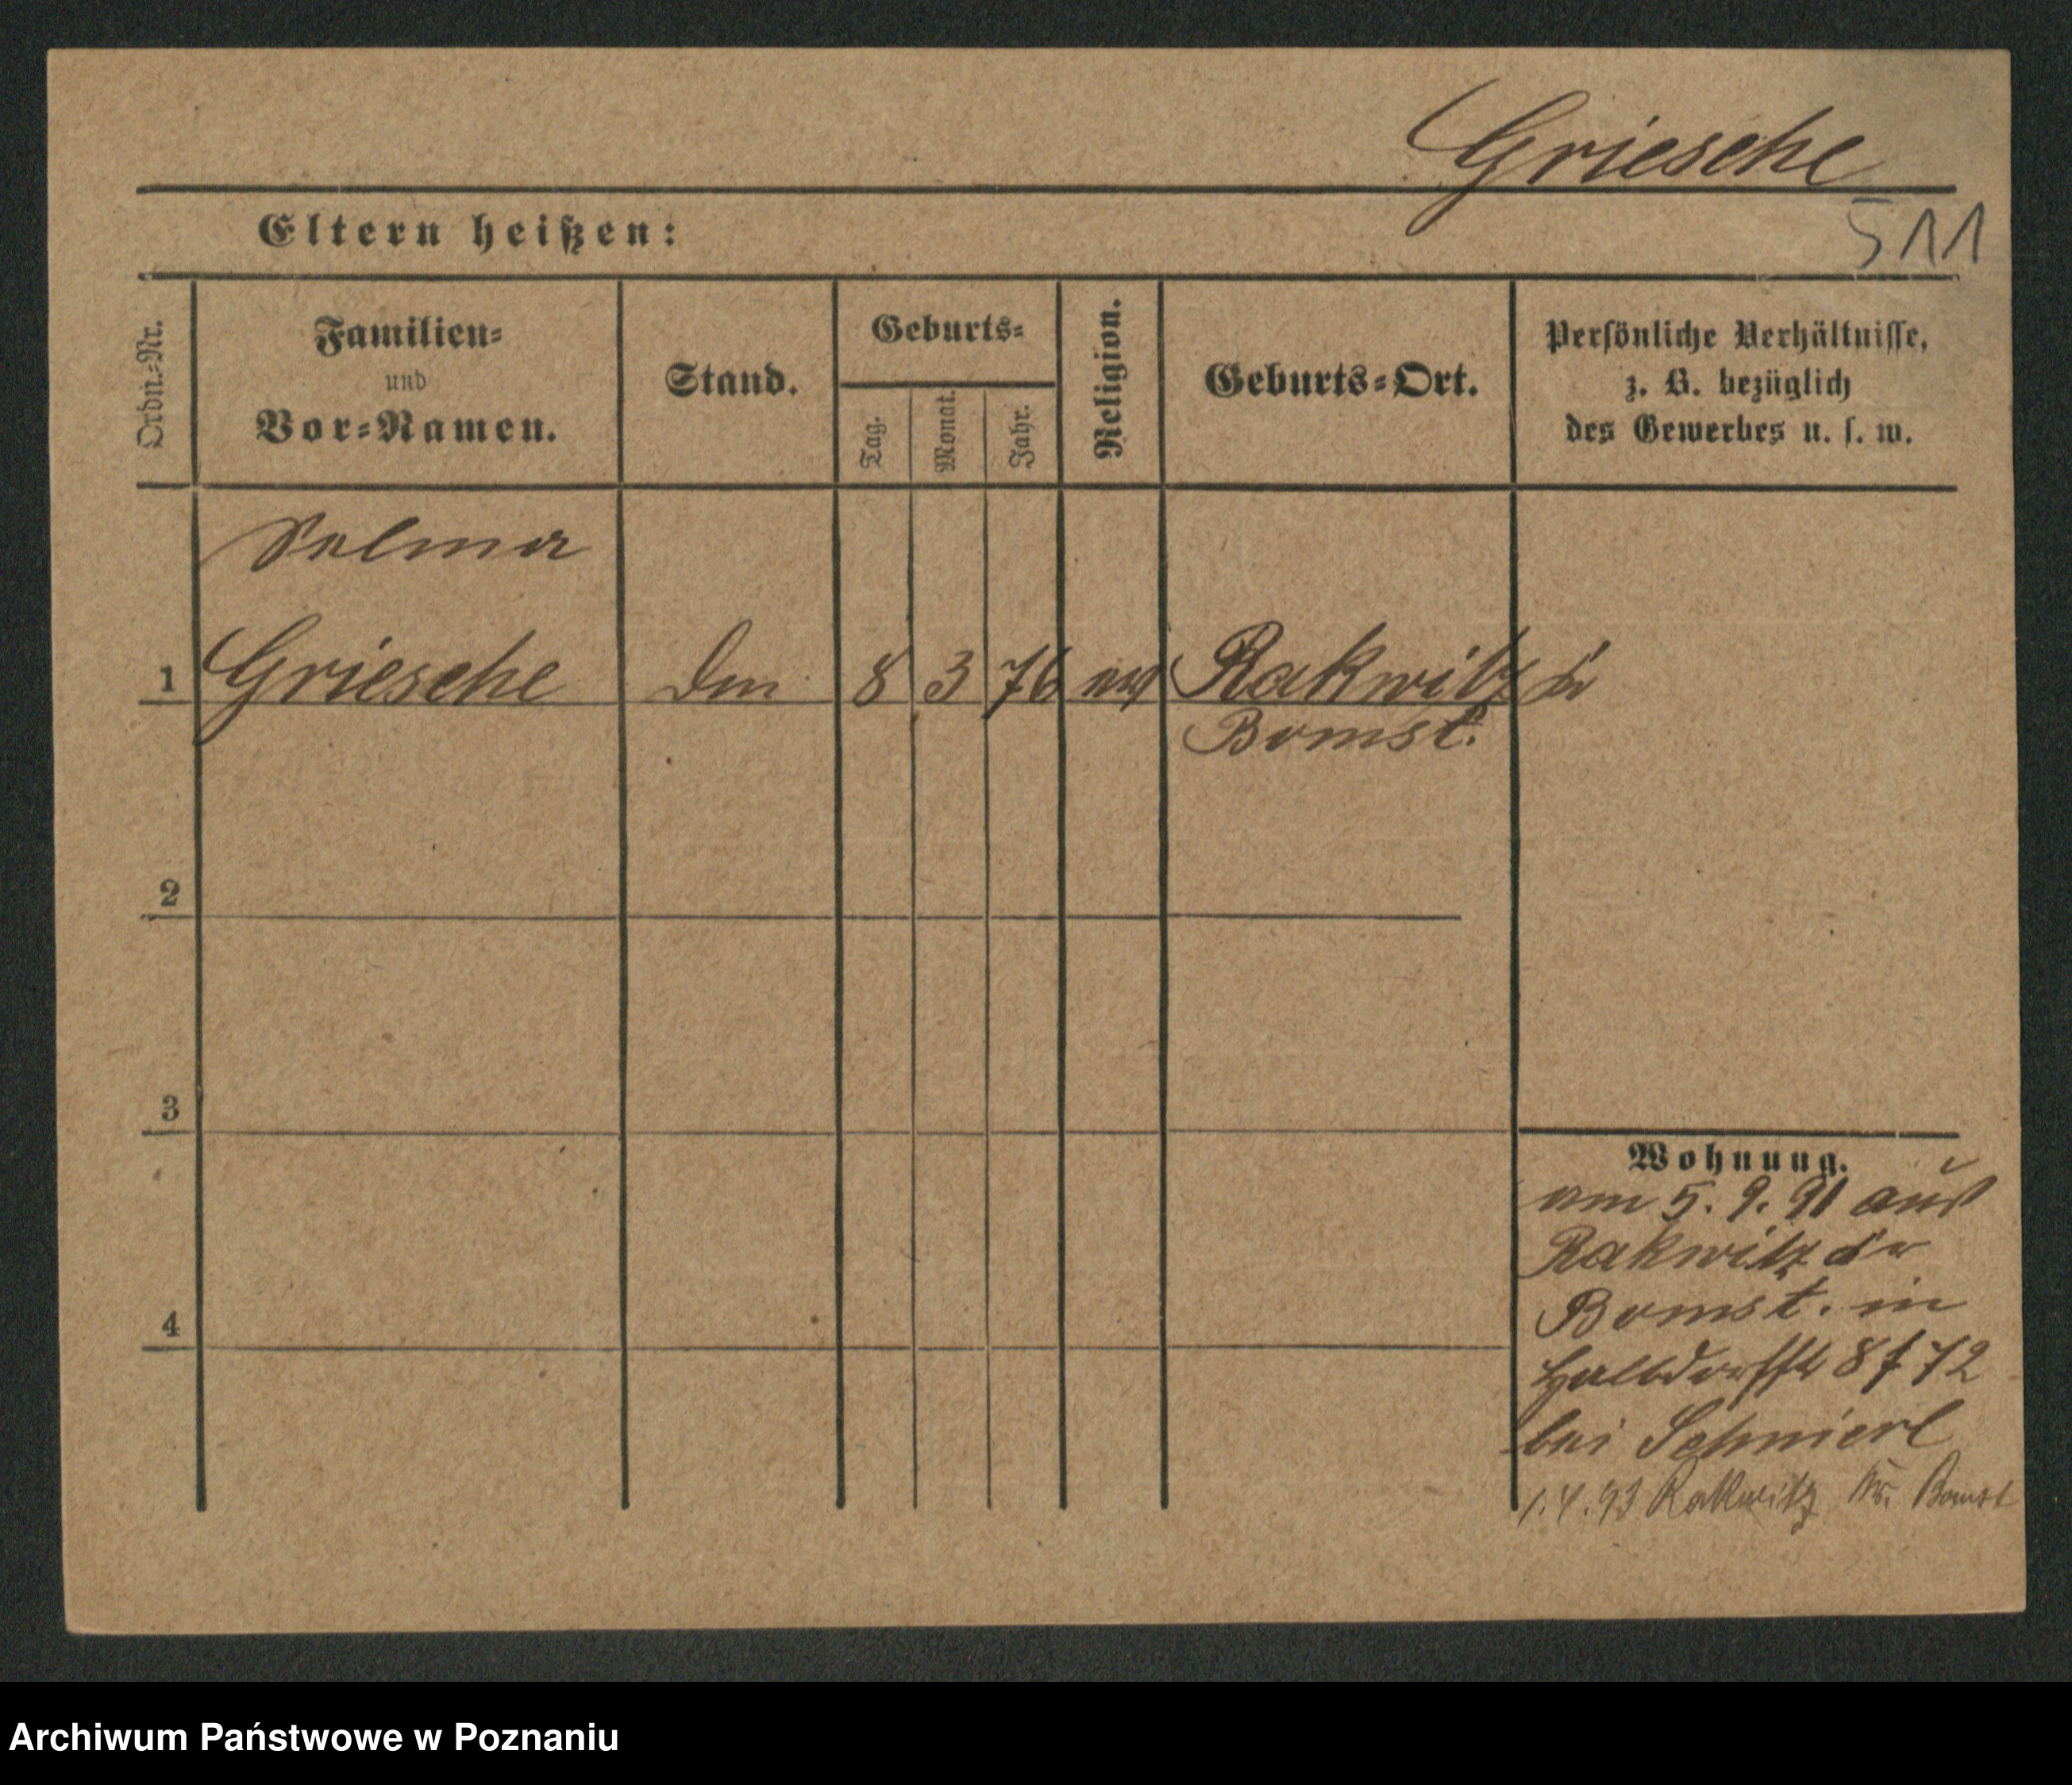 Griesche
511
Eltern heißen:
Ordn.-Nr.
Familien-
und
Vor-Namen.
Stand.
Geburts-
Tag.
Monat.
Jahr.
Religion.
Geburts-Ort.
Persönliche Verhältnisse,
z. B. bezüglich
des Gewerbes u. s. w.
Selma
1 Griesche 8 3 76 Rakwitz
Bomst.
2
3
4
Wohnung.
am 5. 9. 91 aus
Rakwitz
Bomst. in
Halbdorfstr
bei
1.4.93 Rakwitz Kr. Bomst
Archiwum Państwowe w Poznaniu